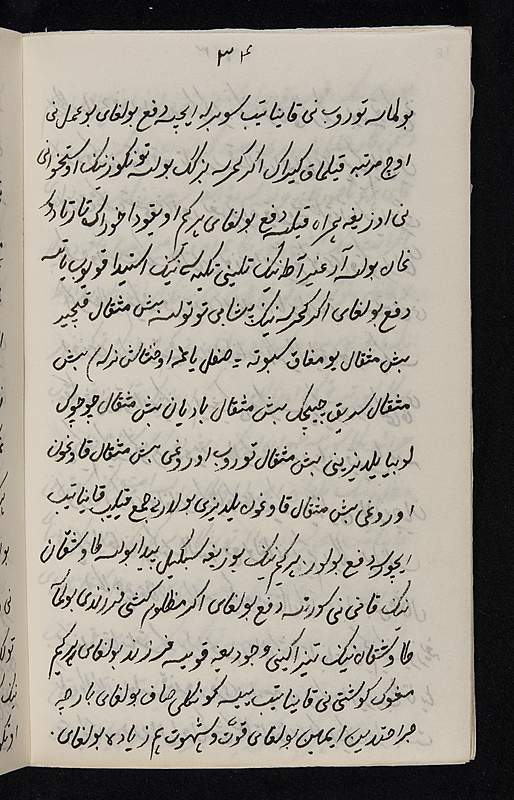 ۳۴
بولماسه توروب نی قایناتیب سوبرله ایچسه دفع بولغای بو عمل نی
اوچ مرتبه قیلماق کیراک اکر کمرسه بزلک بولسه تونکوزنیک اوستخوانی
نی اوزیغه همراه قیلسه دفع بولغای هر کم اویقودا خوراک تارتادورکان
بولسه آرغیر آط نیک تیلینی تکیه سی نیک استیدا قویوب یاتسه
دفع بولغای اکر کمرسه نیک پیشابی توتولسه بیش مثقال
بیش مثقال بومغاق بیش
مثقال سریق چیچک بیش مثقال بادیان بیش مثقال چوچوک
لوبیا یلدیزینی بیش مثقال توروب اوروغی بیش مثقال قاوغون
اوروغی بیش مثقال قاوغون یلدیزی بولارنی جمع قیلیب قایناتیب
ایچورسه دفع بولور هر کیم نیک یوزیغه سیکیل پیدا بولسه طاوشقان
نیک قانی نی سورتسه دفع بولغای اکر مظلوم کشی فرزندی بولماسه
طاوشقان نیک تیزاکینی وجودیغه قویسه فرزند بولغای هر کیم
کوشتی نی قایناتیب ییسه کونکلی صاف بولغای بارچه
جراحتدین ایمین بولغای قوّت و شهوت هم زیاده بولغای.